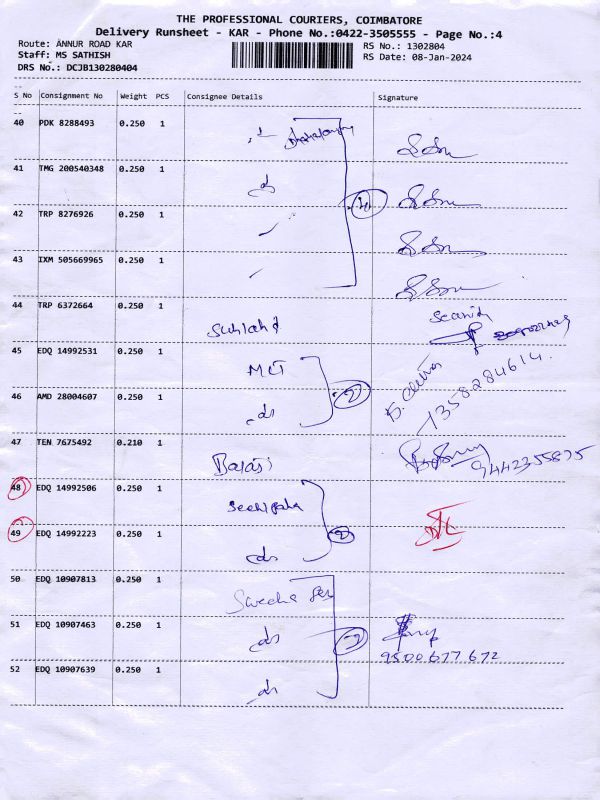 THE PROFESSIONAL COURIERS, COIMBATORE
Delivery Runsheet - KAR - Phone No.:0422-3505555 - Page No.:4
Route: ANNUR ROAD KAR
RS No.: 1302804
Staff: MS SATHISH
RS Date: 08-Jan-2024
DRS No.: DCJB130280404
S No Consignment No Weight PCS Consignee Details Signature
40 PDK 8288493 0.250 1
41 TMG 200540348 0.250 1
do
42 TRP 8276926 0.250 1
43 IXM 505669965 0.250 1
44 TRP 6372664 0.250 1
45 EDQ 14992531 0.250 1
46 AMD 28004607 0.250 1
do
7358284614
47 TEN 7675492 0.210 1
9442355875
48 EDQ 14992506 0.250 1
49 EDQ 14992223 0.250 1
do
50 EDQ 10907813 0.250 1
51 EDQ 10907463 0.250 1
do
9500677672
52 EDQ 10907639 0.250 1
do